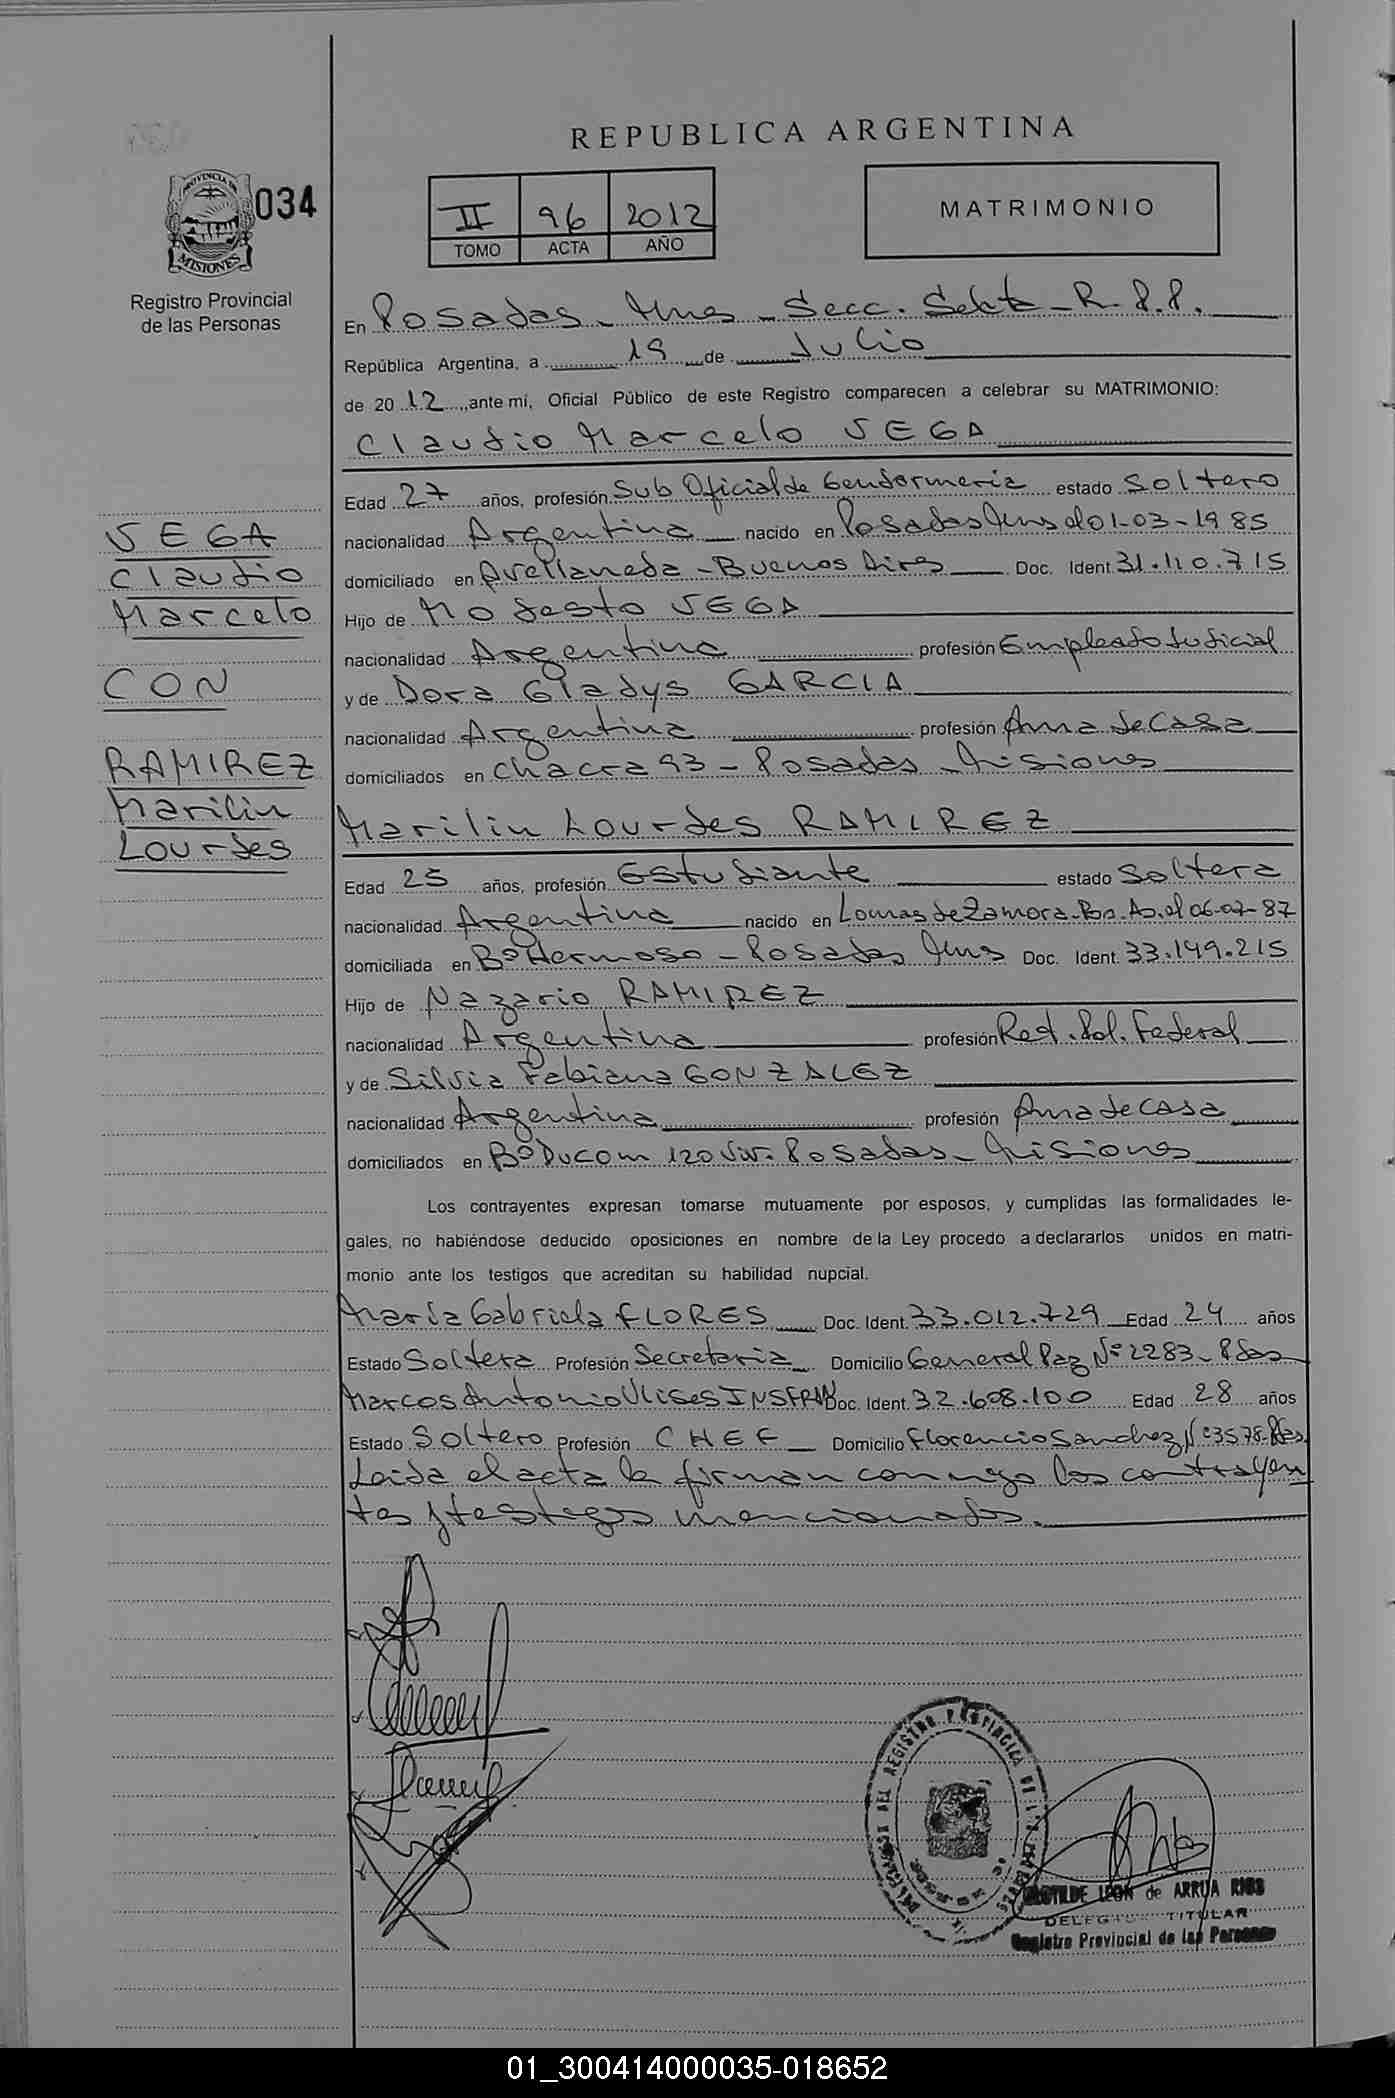 REPUBLICA ARGENTINA
PROVINCIA DE
MISIONES
034
Registro Provincial
de las Personas
II 96 2012
TOMO ACTA AÑO
MATRIMONIO
En Posadas - Mnes - Secc. Sexta - R.P.P.
República Argentina, a 19 de Julio
de 2012, ante mí, Oficial Público de este Registro comparecen a celebrar su MATRIMONIO:
Claudio Marcelo SEGA
Edad 27 años, profesión Sub Oficial de Gendarmeria estado Soltero
nacionalidad Argentina nacido en Posadas Mns el 01-03-1985
domiciliado en Avellaneda - Buenos Aires Doc. Ident. 31.110.715
Hijo de Modesto SEGA
nacionalidad Argentina profesión Empleado Judicial
y de Dora Gladys GARCIA
nacionalidad Argentina profesión Ama de Casa
domiciliados en Chacra 93 - Posadas - Misiones
Marilin Lourdes RAMIREZ
Edad 25 años, profesión Estudiante estado Soltera
nacionalidad Argentina nacido en Lomas de Zamora - Bs. As. el 06-07-87
domiciliada en Bº Hermoso - Posadas Mns Doc. Ident. 33.149.215
Hijo de Nazario RAMIREZ
nacionalidad Argentina profesión Ret. Pol. Federal
y de Silvia Fabiana GONZALEZ
nacionalidad Argentina profesión Ama de casa
domiciliados en Bº Ducom 120 Viv. Posadas - Misiones
Los contrayentes expresan tomarse mutuamente por esposos, y cumplidas las formalidades le-
gales, no habiéndose deducido oposiciones en nombre de la Ley procedo a declararlos unidos en matri-
monio ante los testigos que acreditan su habilidad nupcial.
María Gabriela FLORES Doc. Ident. 33.012.729 Edad 24 años
Estado Soltera Profesión Secretaria Domicilio General Paz Nº 2283 - Pdas
Marcos Antonio Ulises INSFRAN Doc. Ident. 32.608.100 Edad 28 años
Estado Soltero Profesión CHEF Domicilio Florencio Sanchez Nº 3578 - Pdas.
Leida el acta la firman conmigo los contrayen
tes y testigos mencionados.
SEGA
Claudio
Marcelo
CON
RAMIREZ
Marilin
Lourdes
CLOTILDE LEON de ARRUA RIOS
DELEGADA TITULAR
Registro Provincial de las Personas
01_300414000035-018652